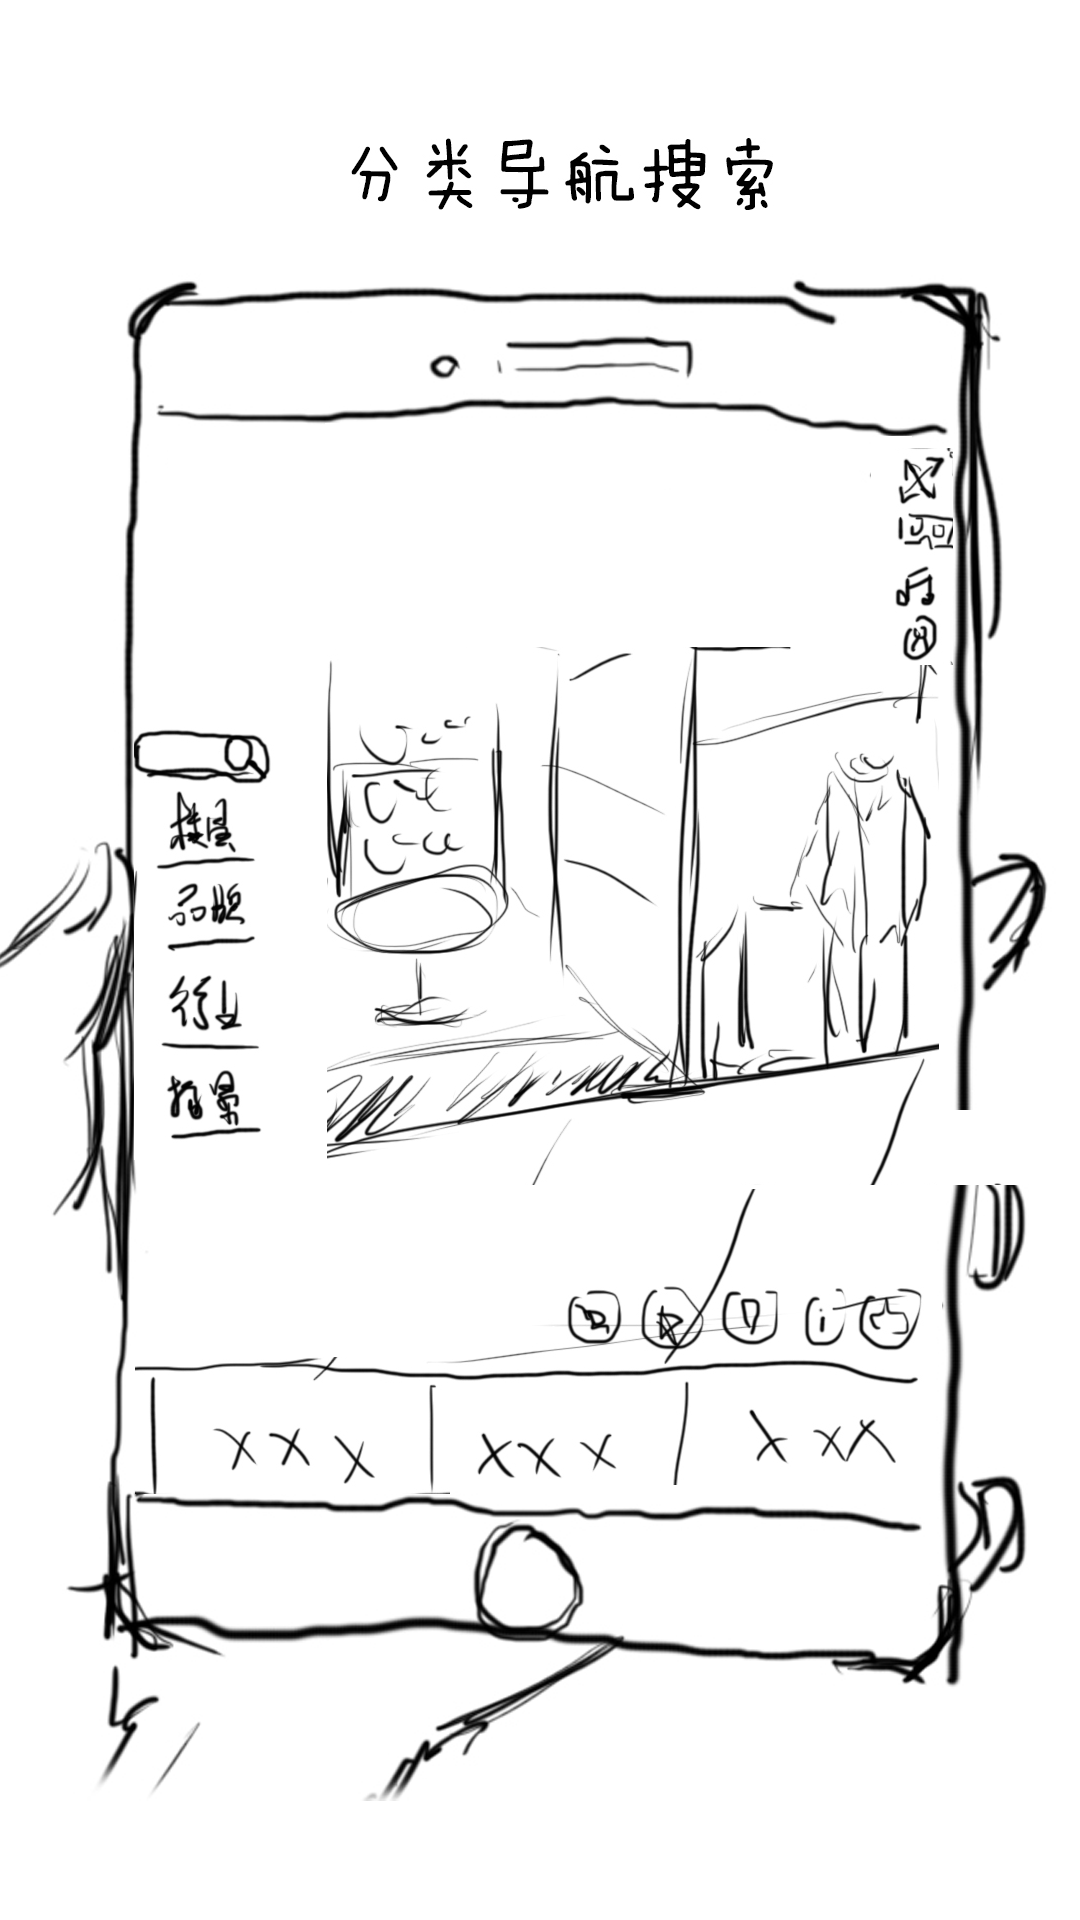 分类导航搜索
楼层
品牌
行业
i
XXX
XXX
XXX